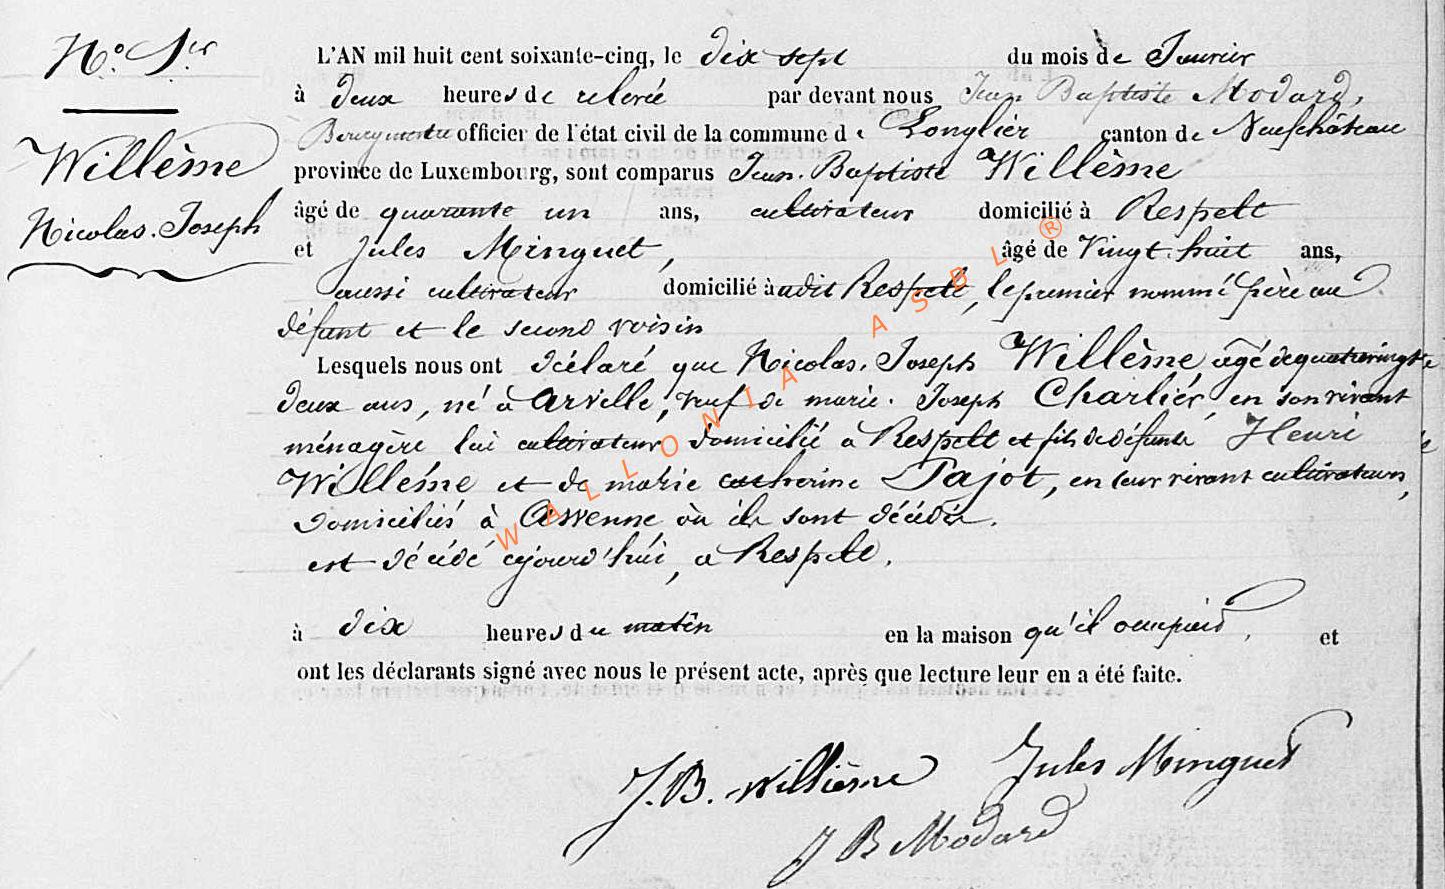 N.º 1.er
Willème
Nicolas. Joseph
L'AN mil huit cent soixante-cinq, le dix sept du mois de Janvier
à deux heures de relevée par devant nous Jean Baptiste Modard,
Bourgmestre officier de l'état civil de la commune de Longlier canton de Neufchâteau
province de Luxembourg, sont comparus Jean. Baptiste Willème
âgé de quarante un ans, cultivateur domicilié à Respelt
et Jules Minguet, âgé de Vingt. huit ans,
aussi cultivateur domicilié à audit Respelt, le premier nommé père au
défunt et le second voisin
Lesquels nous ont déclaré que Nicolas. Joseph Willème âgé de quatrevingt
deux ans, né à Arville, veuf de marie. Joseph Charlier, en son vivant
ménagère lui cultivateur domicilié à Respelt et fils de défunts Henri
Willème et de marie catherine Pajot, en leur vivant cultivateurs,
domiciliés à Awenne où ils sont décédés.
est décédé cejourd'hui, à Respelt.
à dix heures du matin en la maison qu'il occupait, et
ont les déclarants signé avec nous le présent acte, après que lecture leur en a été faite.
J. B. Willième Jules Minguet
J B Modard
WALLONIA ASBL ®